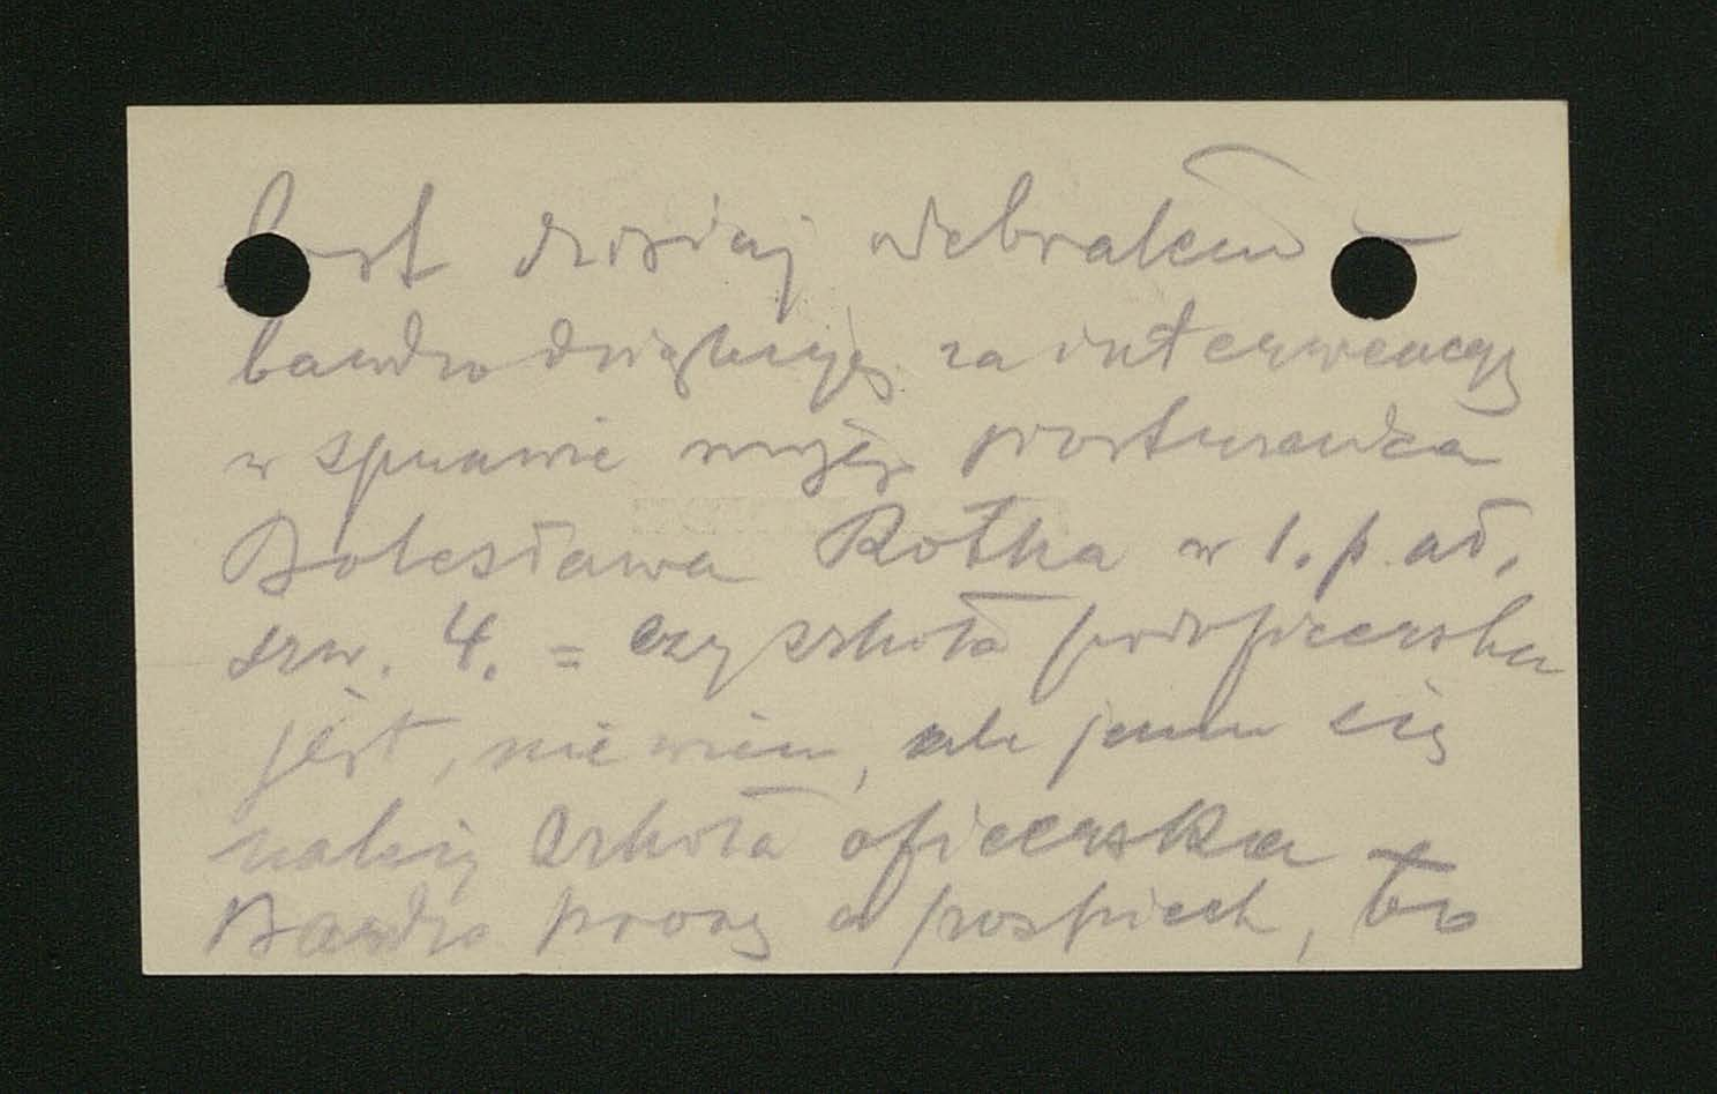 List dzisiaj odebrałem –
bardzo dziękuję za interwencję
w sprawie mojej
Bolesława Rotka w 1. p. ad.
szw. 4. = czy szkoła podoficerska
jest, nie wiem, ale jemu się
należy szkoła oficerska
Bardzo proszę o pospiech, bo